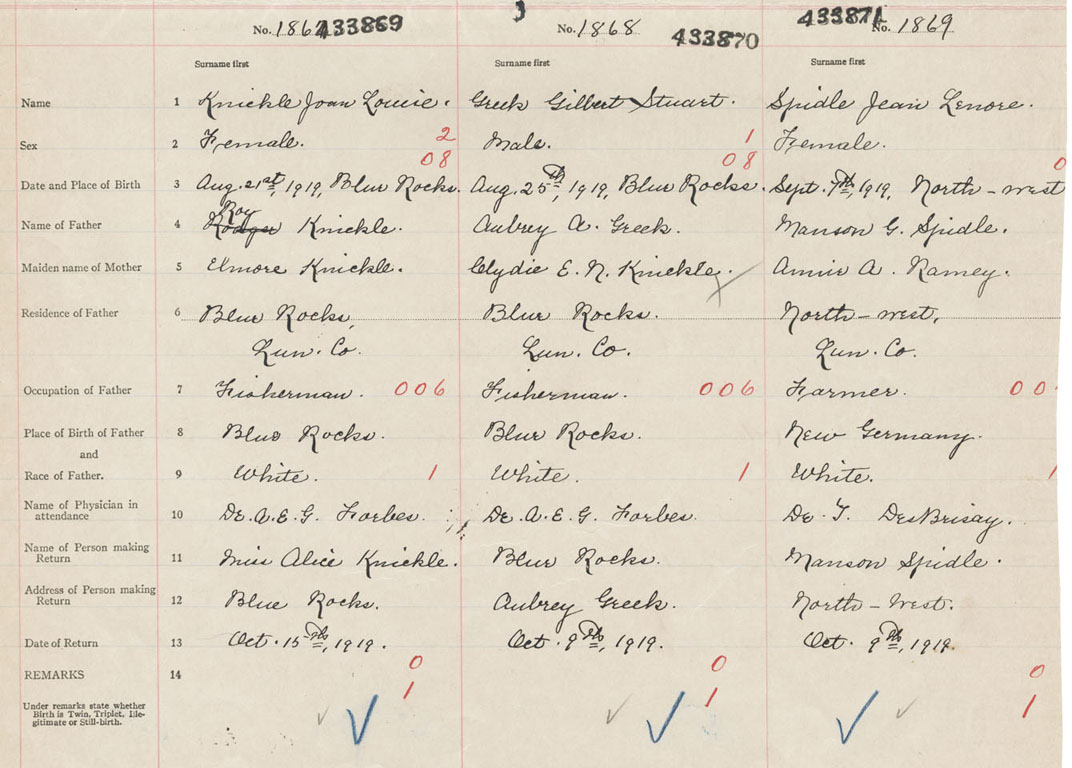 No. 1867 433869 No. 1868 433870 433871 No. 1869
Surname first Surname first Surname first
Name 1 Knickle Joan Louise. Greek Gilbert Stuart. Spidle Jean Lenore.
Sex 2 Female. 2 Male. 1 Female.
08 08 0
Date and Place of Birth 3 Aug. 21st, 1919, Blue Rocks. Aug. 25th, 1919, Blue Rocks. Sept. 7th, 1919, North-west
Roy
Name of Father 4 Knickle. Aubrey A. Greek. Manson G. Spidle.
Maiden name of Mother 5 Elmore Knickle. Clydie E. N. Knickle. Annie A. Ramey.
Residence of Father 6 Blue Rocks, Blue Rocks. North-west,
Lun. Co. Lun. Co. Lun. Co.
Occupation of Father 7 Fisherman. 006 Fisherman. 006 Farmer. 00
Place of Birth of Father 8 Blue Rocks. Blue Rocks. New Germany.
and
Race of Father. 9 White. 1 White. 1 White. 1
Name of Physician in
attendance 10 Dr. A. E. G. Forbes. Dr. A. E. G. Forbes. Dr. T. DesBrisay.
Name of Person making
Return 11 Miss Alice Knickle. Blue Rocks. Manson Spidle.
Address of Person making
Return 12 Blue Rocks. Aubrey Greek. North-West.
Date of Return 13 Oct. 15th, 1919. Oct. 9th, 1919. Oct. 9th, 1919.
REMARKS 14 0 0 0
1 1 1
Under remarks state whether
Birth is Twin, Triplet, Ille-
gitimate or Still-birth.